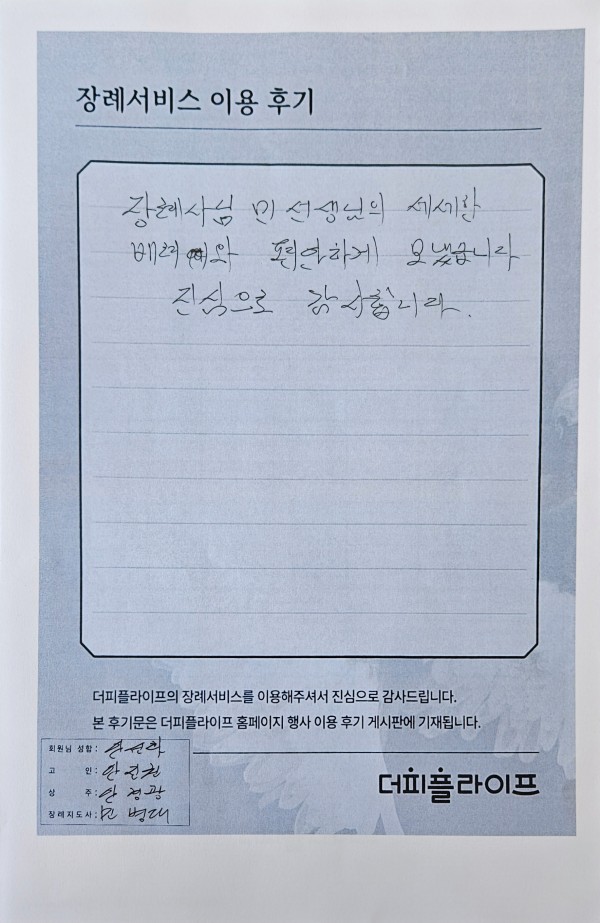 장례서비스 이용 후기
장례사님 민 선생님의 세세한
배려와 편안하게 모셨습니다
진심으로 감사합니다.
더피플라이프의 장례서비스를 이용해주셔서 진심으로 감사드립니다.
본 후기문은 더피플라이프 홈페이지 행사 이용 후기 게시판에 기재됩니다.
회원님 성함:
고 인: 안
상 주: 안 정광
장례지도사: 민 병대
더피플라이프